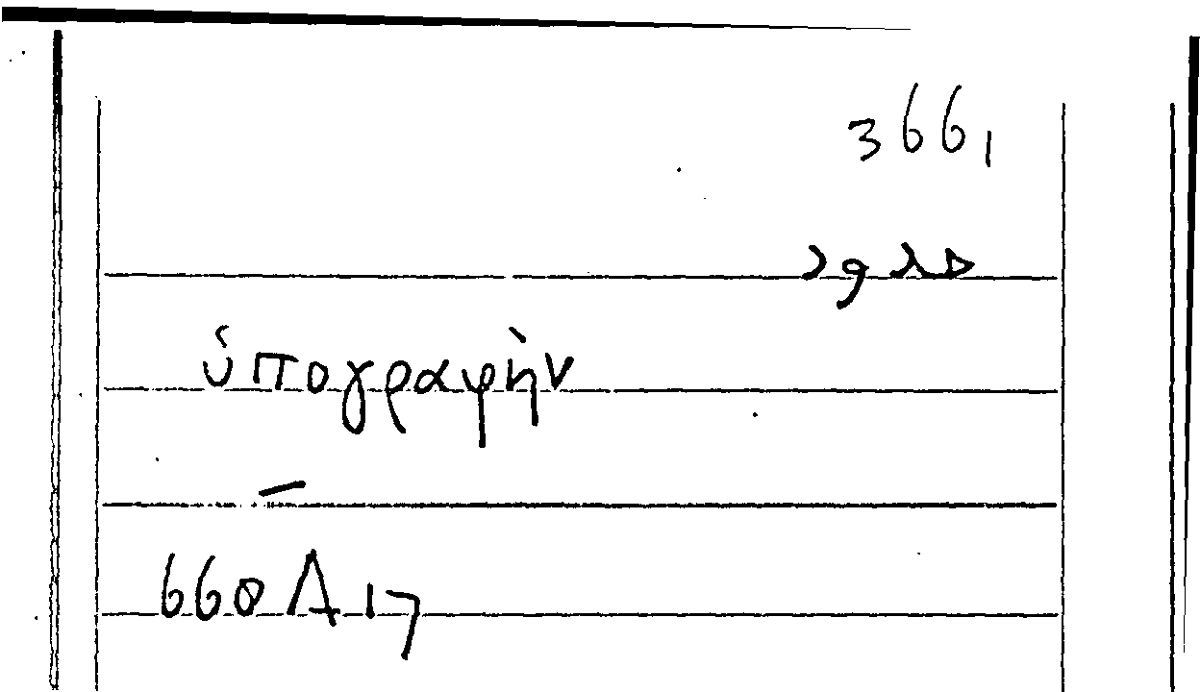 366,1
ὑπογραφὴν
—
660 A 17